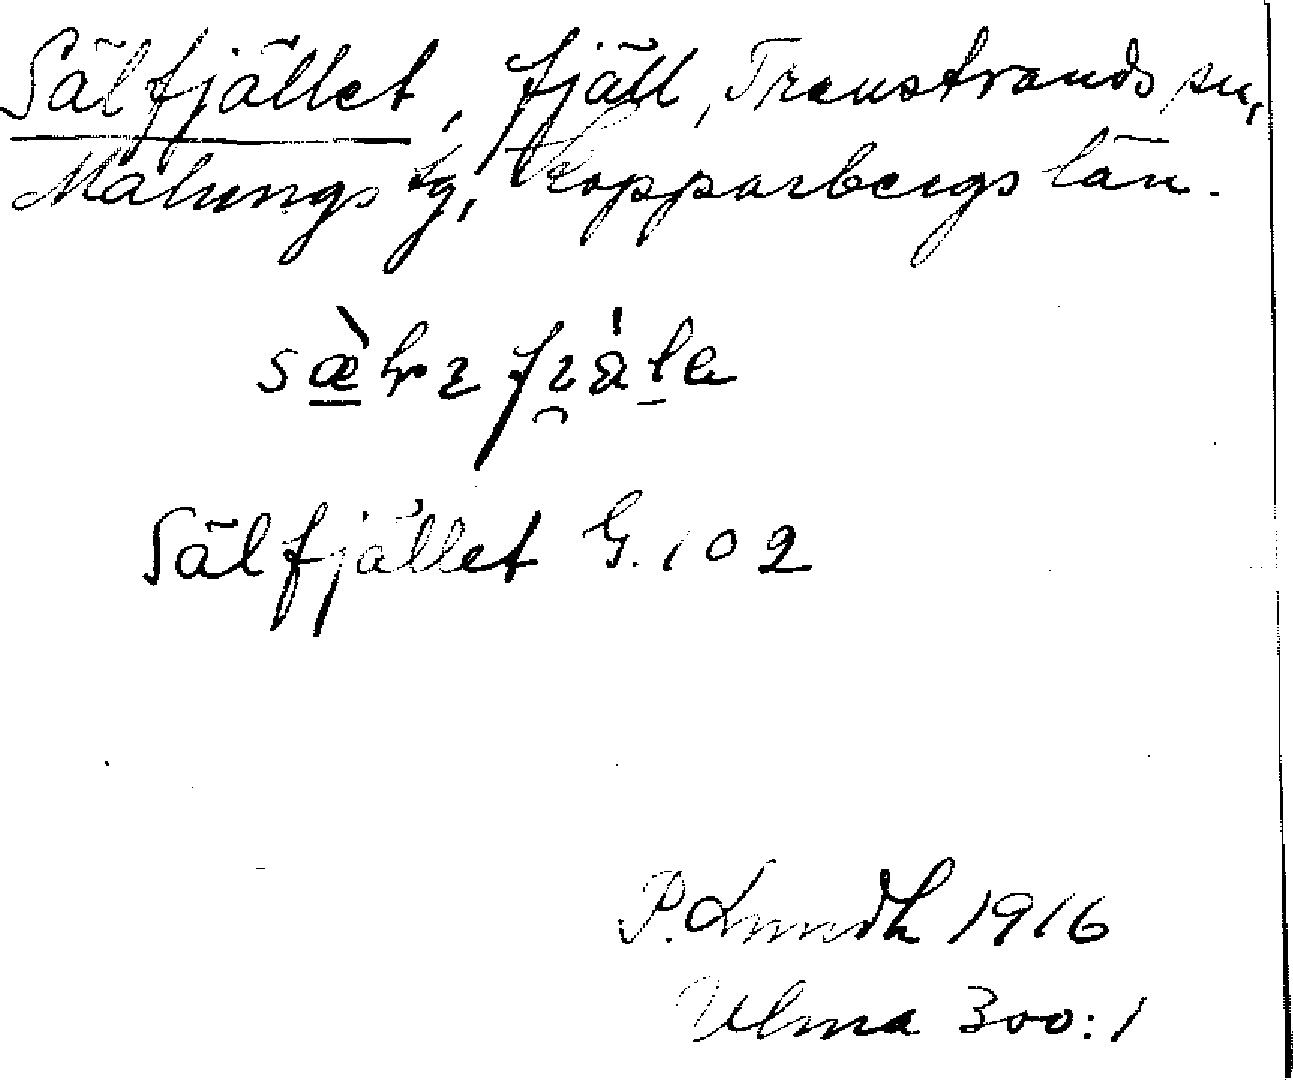 Sälfjället, fjäll, Transtrands sn,
Malungs tg, Kopparbergs län.
Sälfjället G. 102
P. Lundh 1916
Ulma 300:1